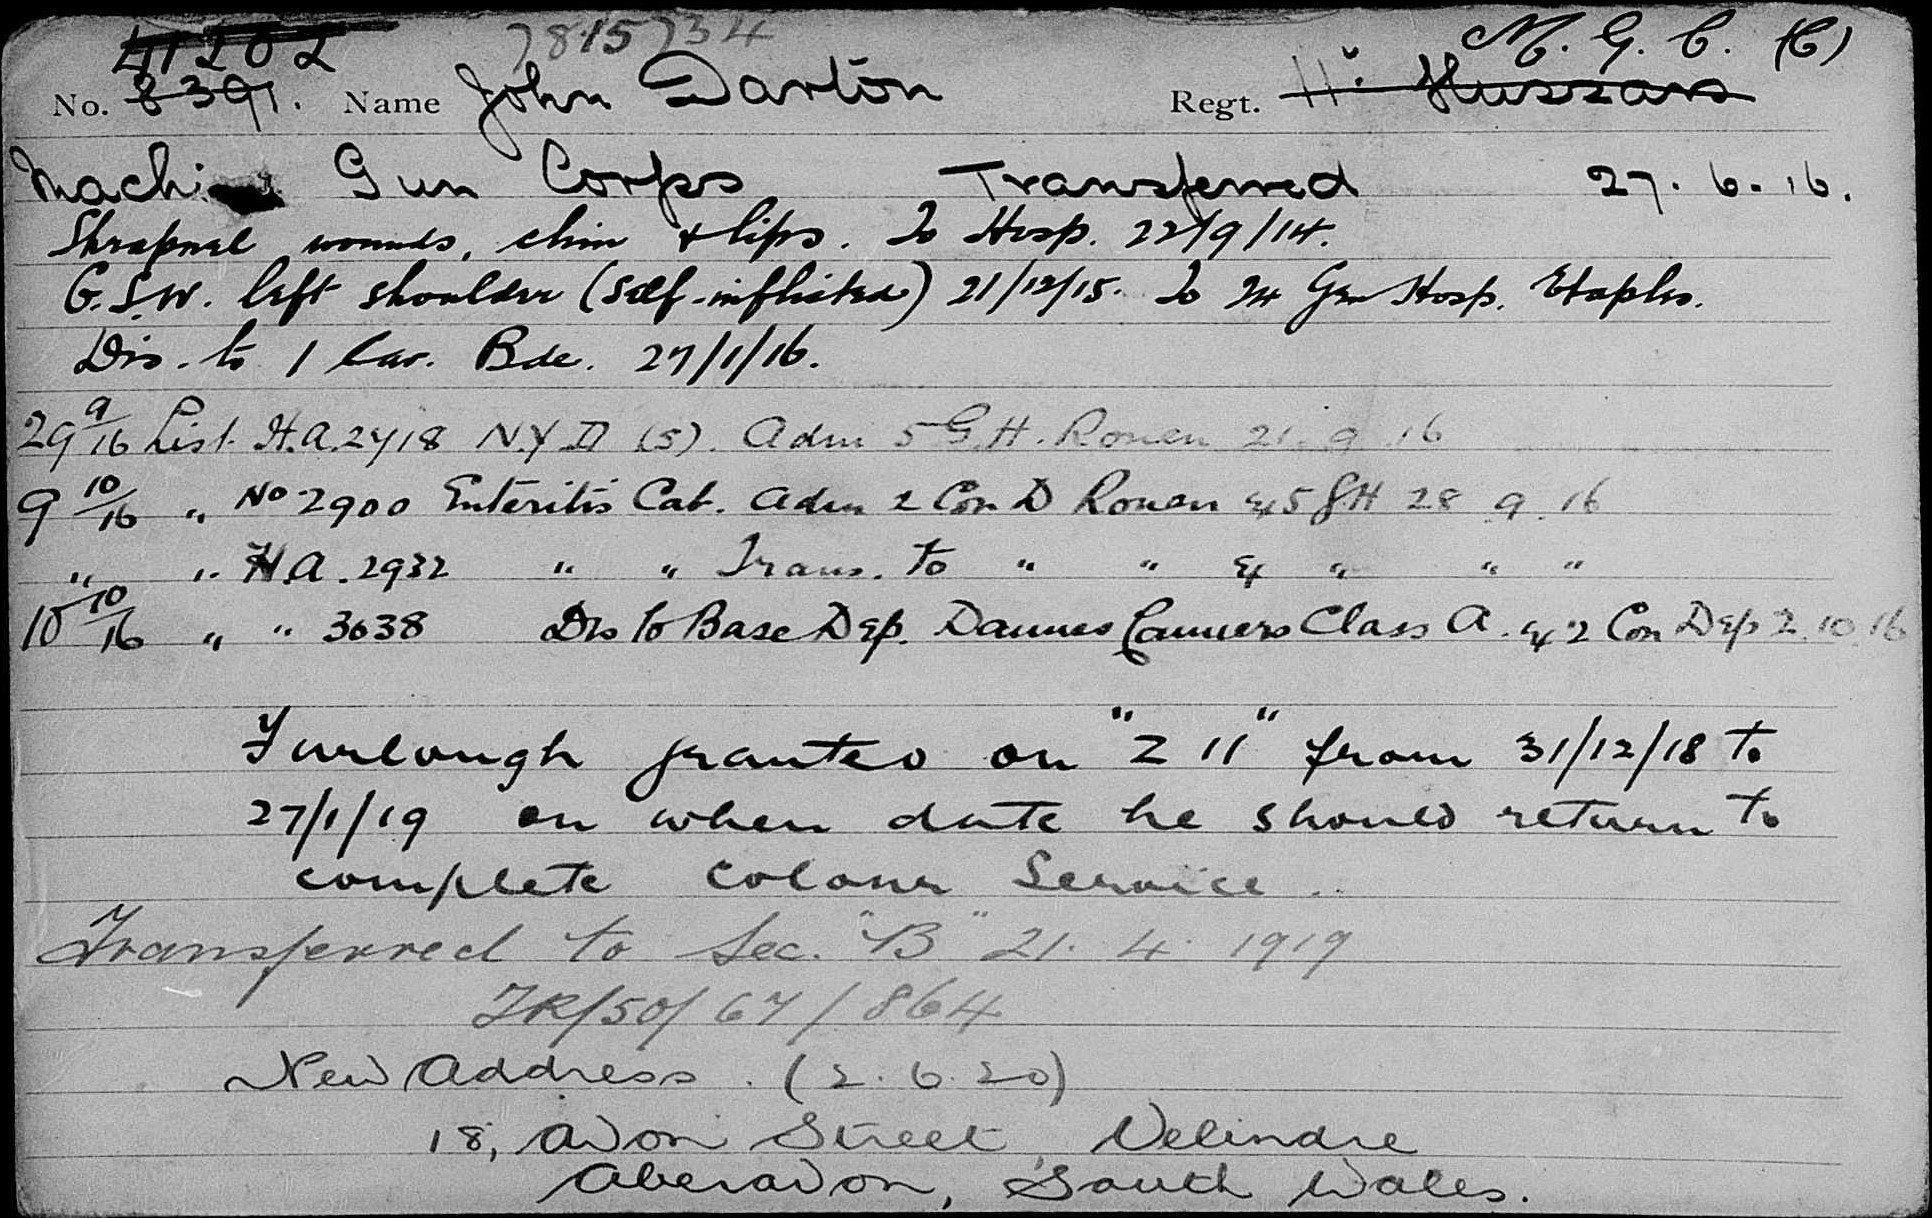 41202 7815734 M. G. C. (C)
No. 8391. Name John Darton Regt. 11th Hussars
Machine Gun Corps Transferred 27.6.16.
Shrapnel wounds, chin & lips. To Hosp. 22/9/14.
G.S.W. left shoulder (Self-inflicted) 21/12/15. To 24 Gen Hosp. Etaples.
Dis. to 1 Cav. Bde. 27/1/16.
29 9/16 List H.A. 2718 N.Y.D (5). Adm 5 G.H. Rouen 21.9.16
9 10/16 " No 2900 Enteritis Cat. Adm 2 Con D Rouen ex 5 GH 28 9.16
" " H.A. 2932 " " Trans. to " " ex " " "
10 10/16 " " 3638 Dis to Base Dep. Dannes Camiers Class A. ex 2 Con Dep 2.10.16
Furlough granted on "Z 11" from 31/12/18 to
27/1/19 on when date he should return to
complete Colour Service.
Transferred to Sec. "B" 21. 4. 1919
TR/50/67/864
New Address. (2.6.20)
18, Avon Street, Velindre
Aberavon, South Wales.